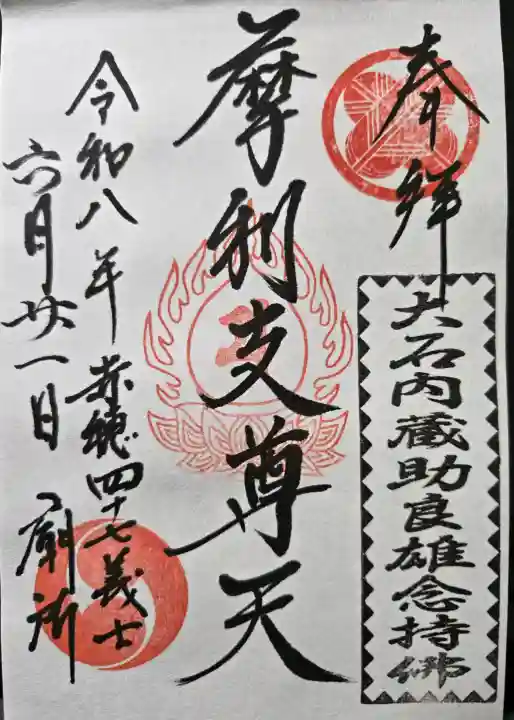 奉拝
大石内蔵助良雄念持佛
摩利支尊天
令和八年
六月廿一日
赤穂四十七義士
廟所